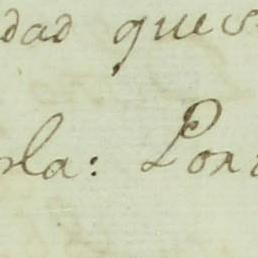 dad ques
rla: Pon